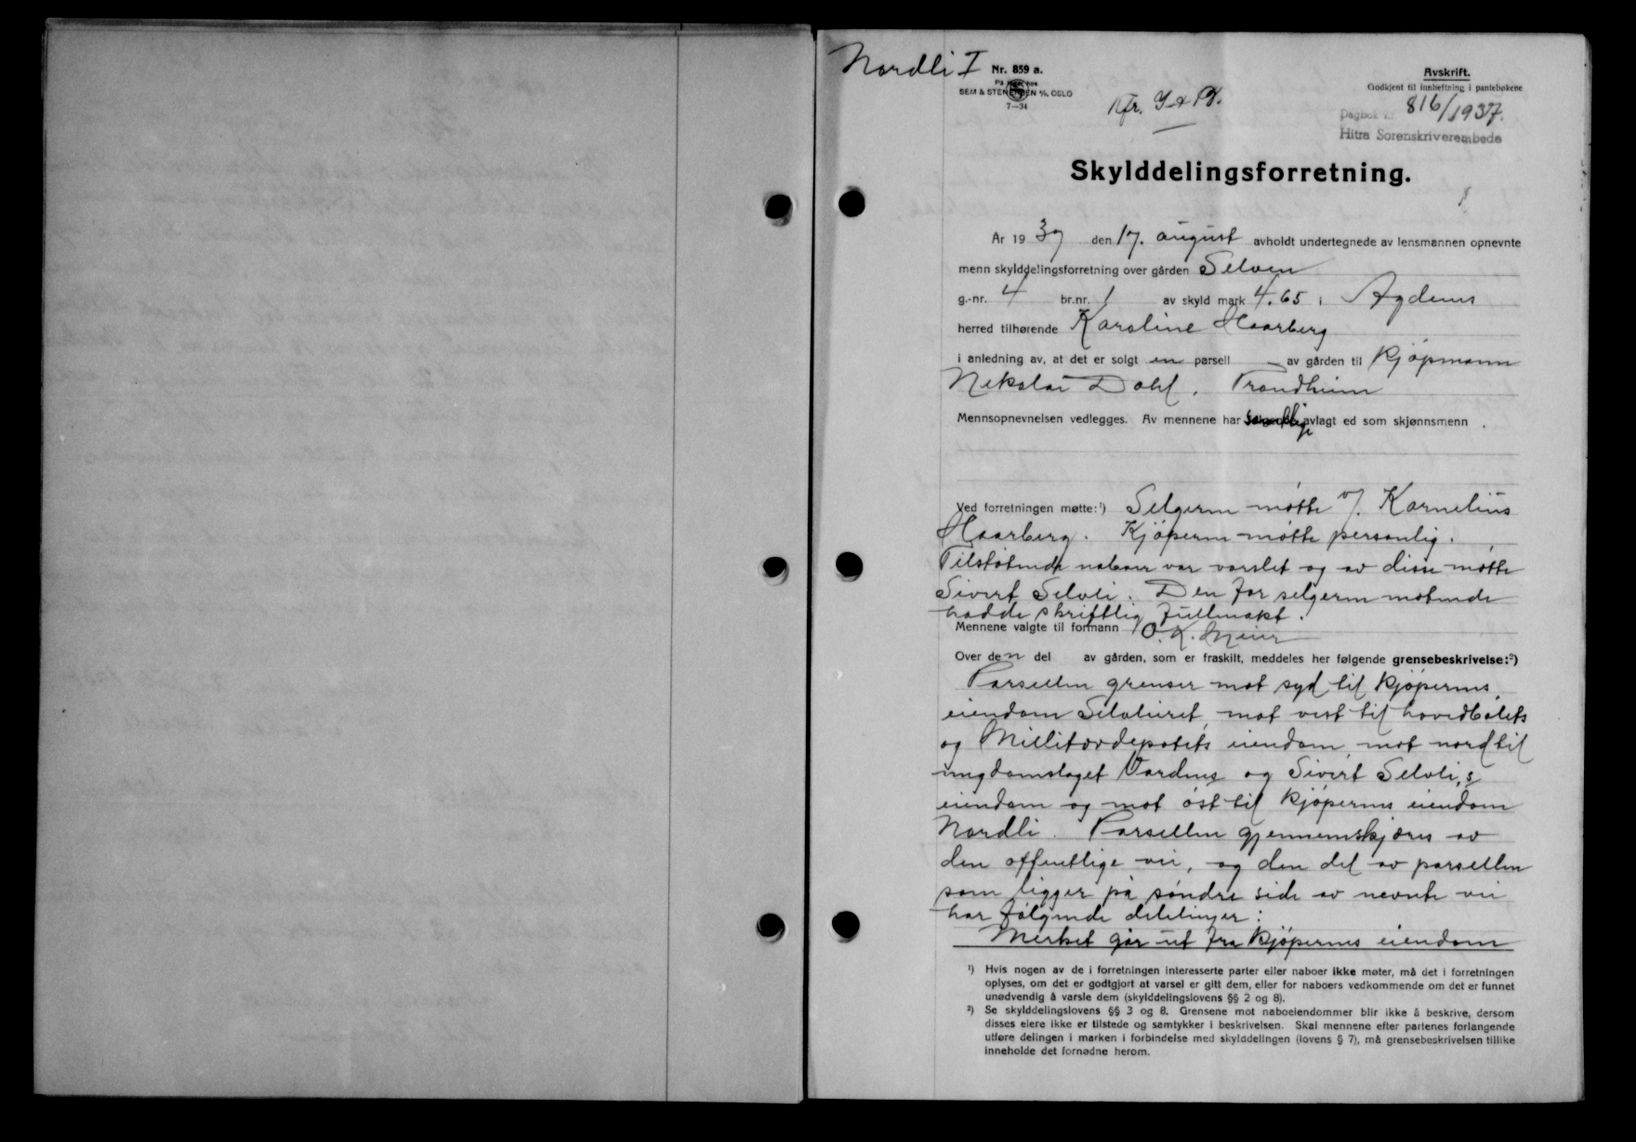 Nordli I
Nr. 859 a.
SEM & STENERSEN A/S, OSLO
7—34
Kfr.
Avskrift.
Godkjent til innheftning i pantebøkene
Dagbok nr. 816/1937.
Hitra Sorenskriverembede
Skylddelingsforretning.
År 1937 den 17. august avholdt undertegnede av lensmannen opnevnte
menn skylddelingsforretning over gården Selven
g.-nr. 4 br.nr. 1 av skyld mark 4.65 i Agdenes
herred tilhørende Karoline Haarberg
i anledning av, at det er solgt en parsell av gården til kjøpmann
Nikolai Dahl, Trondheim
Mennsopnevnelsen vedlegges. Av mennene har samtlige avlagt ed som skjønnsmenn.
Ved forretningen møtte:¹) Selgeren møtte v/. Kornelius
Haarberg. Kjøperen møtte personlig.
Tilstøtende naboer var varslet og av disse møtte
Sivert Selvli. Den for selgeren møtende
hadde skriftlig fullmakt.
Mennene valgte til formann O. K. Meier
Over den del av gården, som er fraskilt, meddeles her følgende grensebeskrivelse:²)
Parsellen grenser mot syd til kjøperens
eiendom, mot vest til hovedbølets
og Millitærdepotets eiendom, mot nord til
ungdomslaget Vardens og Sivert Selvli,s
eiendom og mot øst til kjøperens eiendom
Nordli. Parsellen gjennemskjæres av
den offentlige vei, og den del av parsellen
som ligger på søndre side av nevnte vei
har følgende delelinjer:
Merket går ut fra kjøpernes eiendom
¹) Hvis nogen av de i forretningen interesserte parter eller naboer ikke møter, må det i forretningen
oplyses, om det er godtgjort at varsel er gitt dem, eller for naboers vedkommende om det er funnet
unødvendig å varsle dem (skylddelingslovens §§ 2 og 8).
²) Se skylddelingslovens §§ 3 og 8. Grensene mot naboeiendommer blir ikke å beskrive, dersom
disses eiere ikke er tilstede og samtykker i beskrivelsen. Skal mennene efter partenes forlangende
utføre delingen i marken i forbindelse med skylddelingen (lovens § 7), må grensebeskrivelsen tillike
inneholde det fornødne herom.